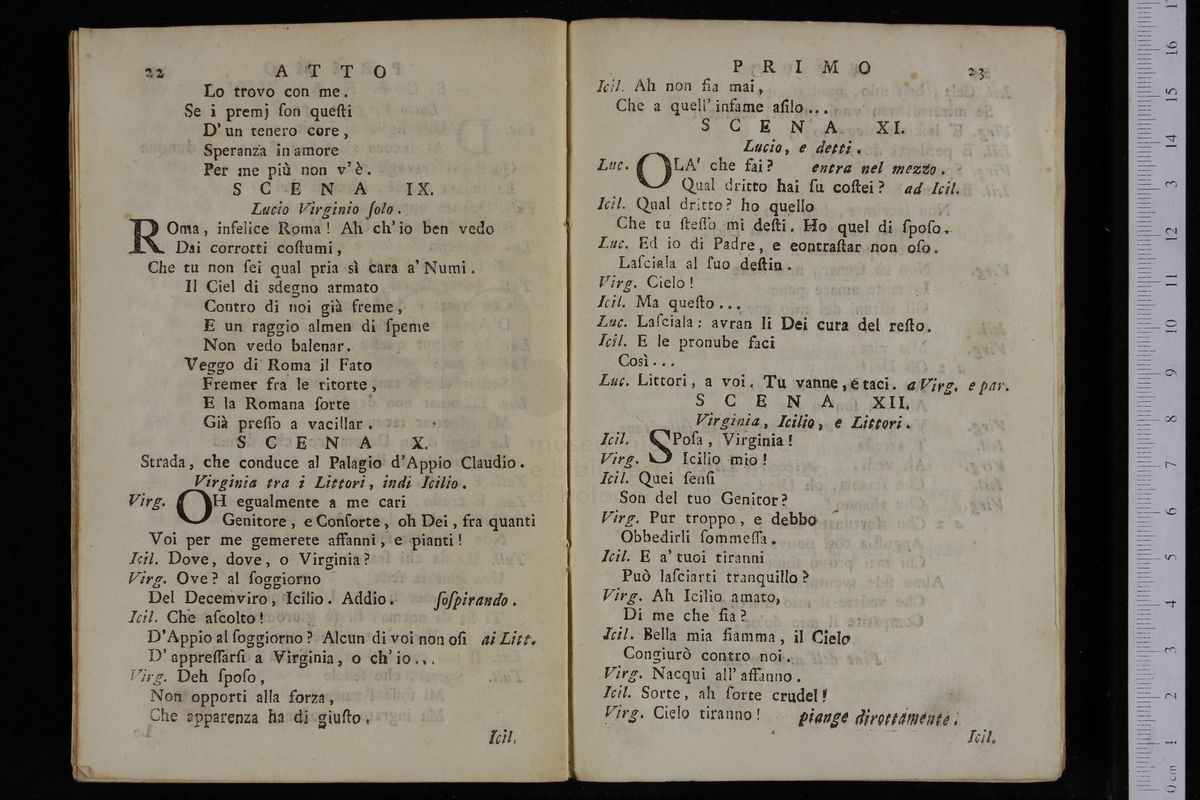 22 ATTO
Lo trovo con me.
Se i premj ſon queſti
D'un tenero core,
Speranza in amore
Per me più non v'è.
SCENA IX.
Lucio Virginio ſolo.
ROma, infelice Roma! Ah ch'io ben vedo
Dai corrotti coſtumi,
Che tu non ſei qual pria sì cara a' Numi.
Il Ciel di sdegno armato
Contro di noi già freme,
E un raggio almen di ſpeme
Non vedo balenar.
Veggo di Roma il Fato
Fremer fra le ritorte,
E la Romana ſorte
Già preſſo a vacillar.
SCENA X.
Strada, che conduce al Palagio d'Appio Claudio.
Virginia tra i Littori, indi Icilio.
Virg. OH egualmente a me cari
Genitore, e Conſorte, oh Dei, fra quanti
Voi per me gemerete affanni, e pianti!
Icil. Dove, dove, o Virginia?
Virg. Ove? al ſoggiorno
Del Decemviro, Icilio. Addio. ſoſpirando.
Icil. Che aſcolto!
D'Appio al ſoggiorno? Alcun di voi non oſi ai Litt.
D'appreſſarſi a Virginia, o ch'io...
Virg. Deh ſpoſo,
Non opporti alla forza,
Che apparenza ha di giuſto.
Icil.
PRIMO 23
Icil. Ah non ſia mai,
Che a quell'infame aſilo...
SCENA XI.
Lucio, e detti.
Luc. OLA' che fai? entra nel mezzo.
Qual dritto hai ſu coſtei? ad Icil.
Icil. Qual dritto? ho quello
Che tu ſteſſo mi deſti. Ho quel di ſpoſo.
Luc. Ed io di Padre, e eontraſtar non oſo.
Laſciala al ſuo deſtin.
Virg. Cielo!
Icil. Ma queſto...
Luc. Laſciala: avran li Dei cura del reſto.
Icil. E le pronube faci
Così...
Luc. Littori, a voi. Tu vanne, e taci. a Virg. e par.
SCENA XII.
Virginia, Icilio, e Littori.
Icil. SPoſa, Virginia!
Virg. Icilio mio!
Icil. Quei ſenſi
Son del tuo Genitor?
Virg. Pur troppo, e debbo
Obbedirli ſommeſſa.
Icil. E a' tuoi tiranni
Può laſciarti tranquillo?
Virg. Ah Icilio amato,
Di me che ſia?
Icil. Bella mia fiamma, il Cielo
Congiurò contro noi.
Virg. Nacqui all'affanno.
Icil. Sorte, ah ſorte crudel!
Virg. Cielo tiranno! piange dirottamente.
Icil.